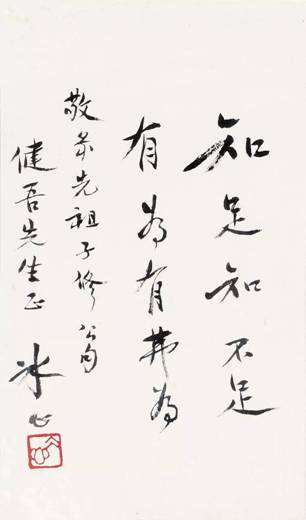 知足知不足
有為有弗為
敬录先祖子修公句
健吾先生正
冰心